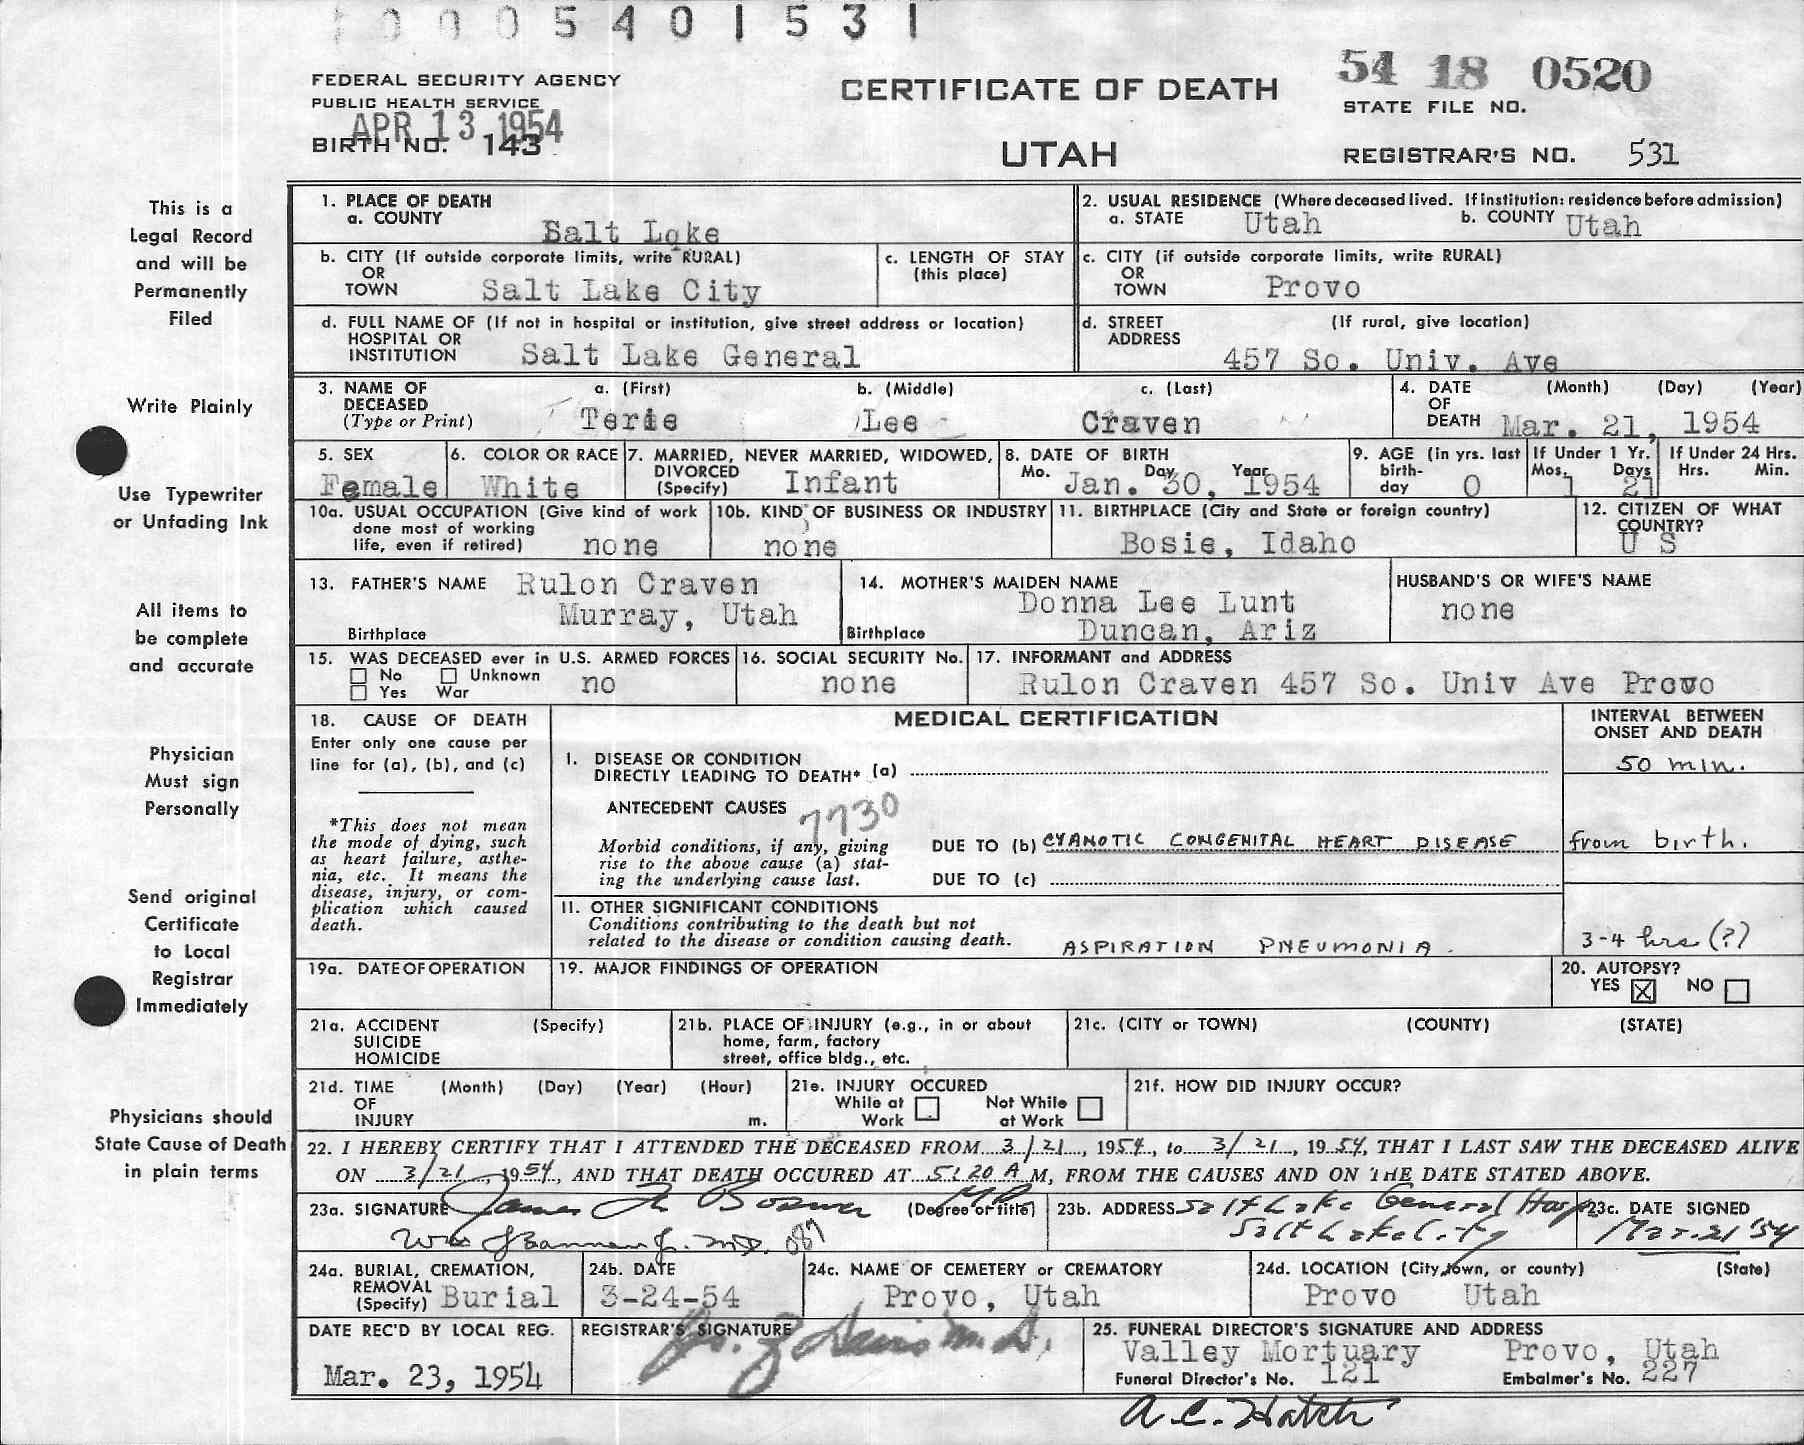 0 0 0 5 4 0 1 5 3 1
FEDERAL SECURITY AGENCY
PUBLIC HEALTH SERVICE
APR 13 1954
BIRTH NO. 143
CERTIFICATE OF DEATH
UTAH
54 18 0520
STATE FILE NO.
REGISTRAR'S NO. 531
This is a
Legal Record
and will be
Permanently
Filed
Write Plainly
Use Typewriter
or Unfading Ink
All items to
be complete
and accurate
Physician
Must sign
Personally
Send original
Certificate
to Local
Registrar
Immediately
Physicians should
State Cause of Death
in plain terms
1. PLACE OF DEATH
a. COUNTY
Salt Lake
2. USUAL RESIDENCE (Where deceased lived. If institution: residence before admission)
a. STATE Utah b. COUNTY Utah
b. CITY (If outside corporate limits, write RURAL)
OR
TOWN Salt Lake City
c. LENGTH OF STAY
(this place)
c. CITY (if outside corporate limits, write RURAL)
OR
TOWN Provo
d. FULL NAME OF (If not in hospital or institution, give street address or location)
HOSPITAL OR
INSTITUTION Salt Lake General
d. STREET (If rural, give location)
ADDRESS
457 So. Univ. Ave
3. NAME OF a. (First) b. (Middle) c. (Last)
DECEASED
(Type or Print) Terie Lee Craven
4. DATE (Month) (Day) (Year)
OF
DEATH Mar. 21, 1954
5. SEX
Female
6. COLOR OR RACE
White
7. MARRIED, NEVER MARRIED, WIDOWED,
DIVORCED
(Specify) Infant
8. DATE OF BIRTH
Mo. Day Year
Jan. 30, 1954
9. AGE (in yrs. last
birth-
day 0
If Under 1 Yr.
Mos. Days
1 21
If Under 24 Hrs.
Hrs. Min.
10a. USUAL OCCUPATION (Give kind of work
done most of working
life, even if retired) none
10b. KIND OF BUSINESS OR INDUSTRY
none
11. BIRTHPLACE (City and State or foreign country)
Bosie, Idaho
12. CITIZEN OF WHAT
COUNTRY?
U S
13. FATHER'S NAME Rulon Craven
Murray, Utah
Birthplace
14. MOTHER'S MAIDEN NAME
Donna Lee Lunt
Birthplace Duncan, Ariz
HUSBAND'S OR WIFE'S NAME
none
15. WAS DECEASED ever in U.S. ARMED FORCES
No Unknown
Yes War no
16. SOCIAL SECURITY No.
none
17. INFORMANT and ADDRESS
Rulon Craven 457 So. Univ Ave Provo
18. CAUSE OF DEATH
Enter only one cause per
line for (a), (b), and (c)
*This does not mean
the mode of dying, such
as heart failure, asthe-
nia, etc. It means the
disease, injury, or com-
plication which caused
death.
MEDICAL CERTIFICATION
INTERVAL BETWEEN
ONSET AND DEATH
I. DISEASE OR CONDITION
DIRECTLY LEADING TO DEATH* (a)
50 min.
ANTECEDENT CAUSES
7730
Morbid conditions, if any, giving
rise to the above cause (a) stat-
ing the underlying cause last.
DUE TO (b) CYANOTIC CONGENITAL HEART DISEASE
from birth.
DUE TO (c)
11. OTHER SIGNIFICANT CONDITIONS
Conditions contributing to the death but not
related to the disease or condition causing death.
ASPIRATION PNEUMONIA.
3-4 hrs (?)
19a. DATE OF OPERATION
19. MAJOR FINDINGS OF OPERATION
20. AUTOPSY?
YES X NO
21a. ACCIDENT (Specify)
SUICIDE
HOMICIDE
21b. PLACE OF INJURY (e.g., in or about
home, farm, factory
street, office bldg., etc.
21c. (CITY or TOWN) (COUNTY) (STATE)
21d. TIME (Month) (Day) (Year) (Hour)
OF
INJURY m.
21e. INJURY OCCURED
While at Work
Not While at Work
21f. HOW DID INJURY OCCUR?
22. I HEREBY CERTIFY THAT I ATTENDED THE DECEASED FROM 3/21, 1954, to 3/21, 1954, THAT I LAST SAW THE DECEASED ALIVE
ON 3/21, 1954, AND THAT DEATH OCCURED AT 5:20 A M, FROM THE CAUSES AND ON THE DATE STATED ABOVE.
23a. SIGNATURE James (Degree or title) MD
M.D. 087
23b. ADDRESS Salt Lake General Hosp
Salt Lake City
23c. DATE SIGNED
Mar. 21 '54
24a. BURIAL, CREMATION,
REMOVAL
(Specify) Burial
24b. DATE
3-24-54
24c. NAME OF CEMETERY or CREMATORY
Provo, Utah
24d. LOCATION (City, town, or county) (State)
Provo Utah
DATE REC'D BY LOCAL REG.
Mar. 23, 1954
REGISTRAR'S SIGNATURE
Davis M.D.
25. FUNERAL DIRECTOR'S SIGNATURE AND ADDRESS
Valley Mortuary Provo, Utah
Funeral Director's No. 121 Embalmer's No. 227
A. C. Hatch